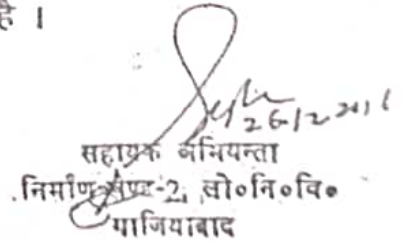 है ।
26/12/2016
सहायक अभियन्ता
निर्माण खण्ड-2, लो०नि०वि०
गाजियाबाद